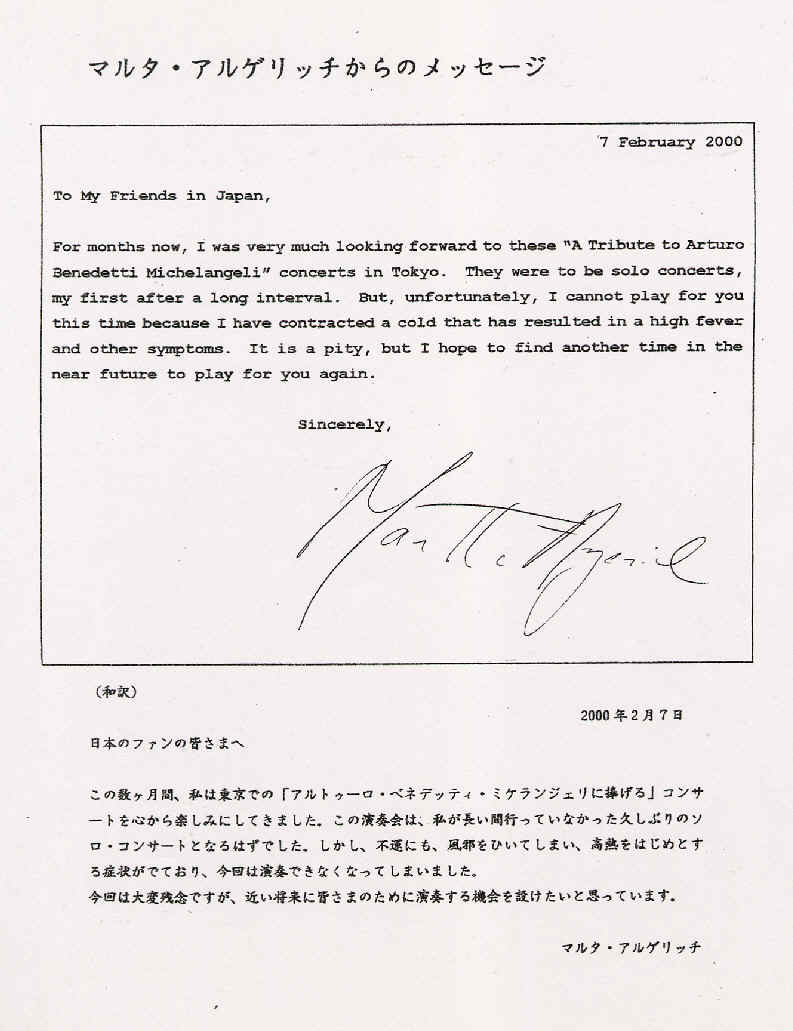 マルタ・アルゲリッチからのメッセージ
7 February 2000
To My Friends in Japan,
For months now, I was very much looking forward to these "A Tribute to Arturo
Benedetti Michelangeli" concerts in Tokyo. They were to be solo concerts,
my first after a long interval. But, unfortunately, I cannot play for you
this time because I have contracted a cold that has resulted in a high fever
and other symptoms. It is a pity, but I hope to find another time in the
near future to play for you again.
Sincerely,
Martha Argerich
（和訳）
2000年2月7日
日本のファンの皆さまへ
この数ヶ月間、私は東京での「アルトゥーロ・ベネデッティ・ミケランジェリに捧げる」コンサ
ートを心から楽しみにしてきました。この演奏会は、私が長い間行っていなかった久しぶりのソ
ロ・コンサートとなるはずでした。しかし、不運にも、風邪をひいてしまい、高熱をはじめとす
る症状がでており、今回は演奏できなくなってしまいました。
今回は大変残念ですが、近い将来に皆さまのために演奏する機会を設けたいと思っています。
マルタ・アルゲリッチ